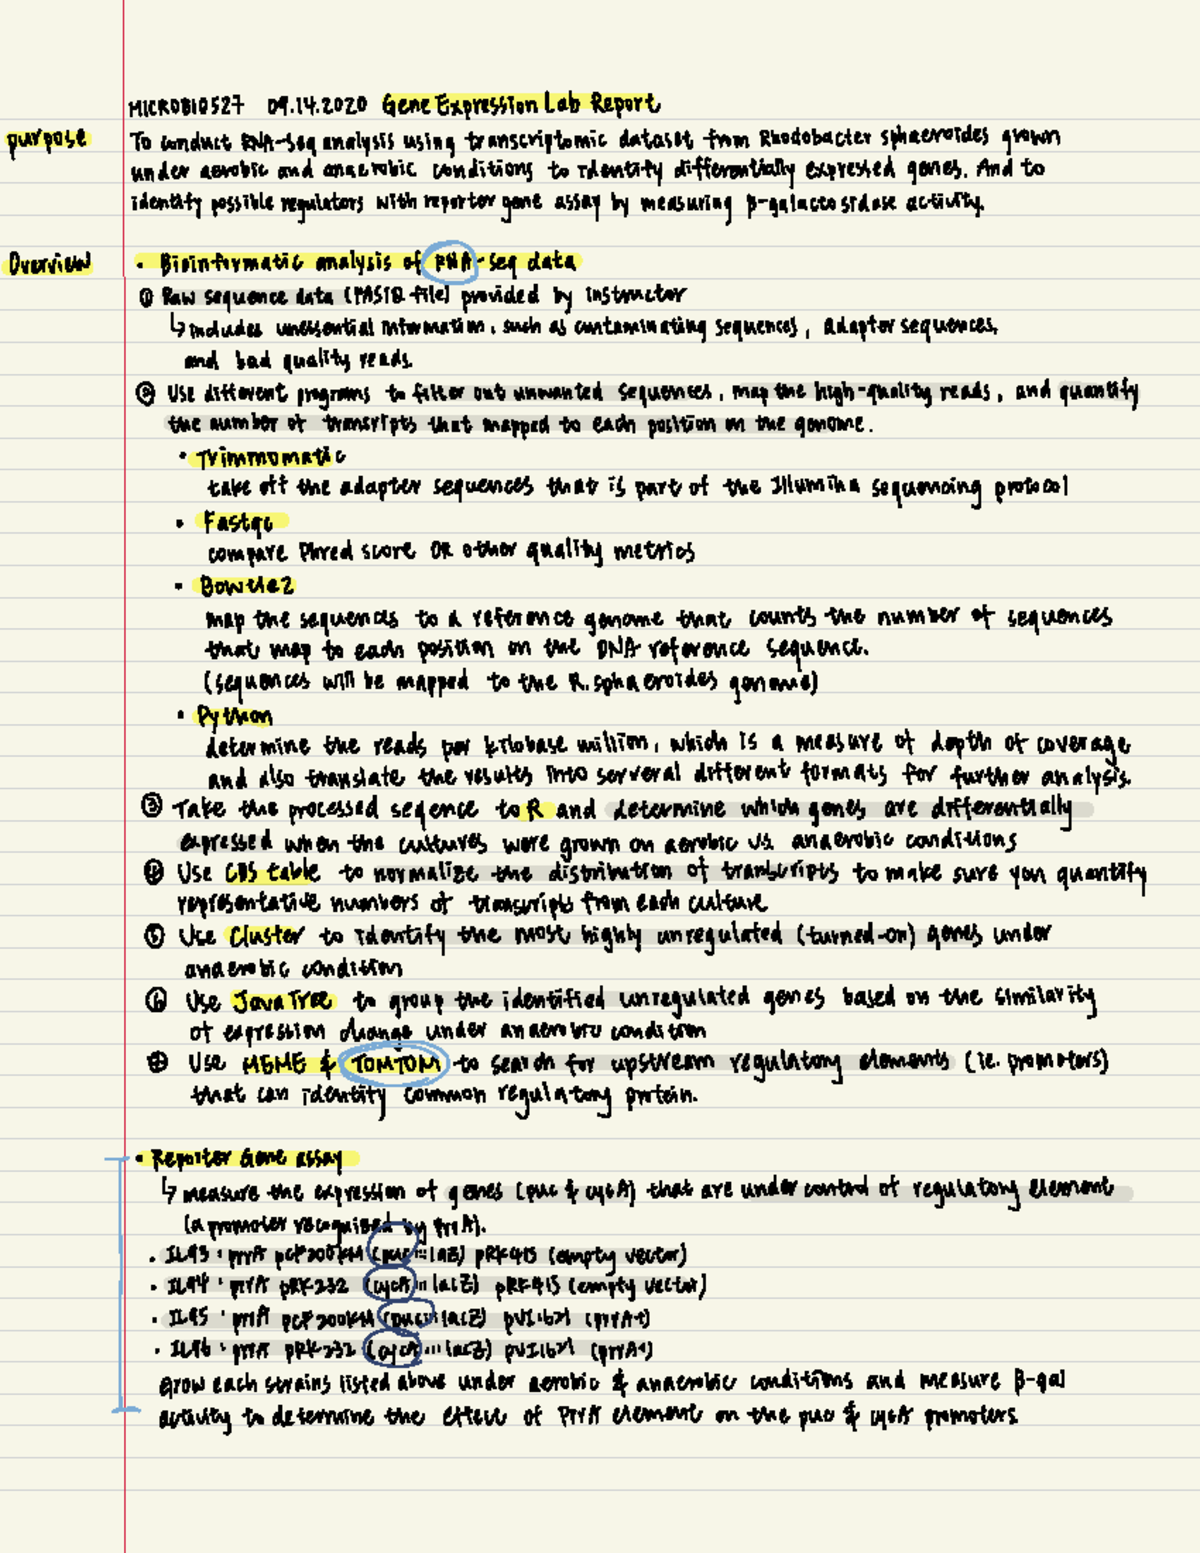 MICROBIO527 09.14.2020 Gene Expression Lab Report
purpose
To conduct RNA-seq analysis using transcriptomic dataset from Rhodobacter sphaeroides grown
under aerobic and anaerobic conditions to identify differentially expressed genes. And to
identify possible regulators with reporter gene assay by measuring β-galactosidase activity.
Overview
• Bioinformatic analysis of RNA-seq data
① Raw sequence data (FASTQ file) provided by instructor
↳ includes unessential information, such as contaminating sequences, adaptor sequences,
and bad quality reads.
② Use different programs to filter out unwanted sequences, map the high-quality reads, and quantify
the number of transcripts that mapped to each position on the genome.
• Trimmomatic
take off the adapter sequences that is part of the Illumina sequencing protocol
• Fastqc
compare Phred score OR other quality metrics
• Bowtie2
map the sequences to a reference genome that counts the number of sequences
that map to each position on the DNA reference sequence.
(sequences will be mapped to the R. sphaeroides genome)
• Python
determine the reads per kilobase million, which is a measure of depth of coverage
and also translate the results into serveral different formats for further analysis.
③ Take the processed seqence to R and determine which genes are differentially
expressed when the cultures were grown on aerobic vs. anaerobic conditions
④ Use CDS table to normalize the distribution of transcripts to make sure you quantify
representative numbers of transcripts from each culture
⑤ Use Cluster to identify the most highly unregulated (turned-on) genes under
anaerobic condition
⑥ Use JavaTree to group the identified unregulated genes based on the similarity
of expression change under anaerobic condition
⑦ Use MEME & TOMTOM to search for upstream regulatory elements (ie. promoters)
that can identify common regulatory protein.
• Reporter Gene assay
↳ measure the expression of genes (puc & cycA) that are under control of regulatory element
(a promoter recognized by PrrA).
• IL93 : prrA pCF200KM (puc::lacZ) pRK415 (empty vector)
• IL94 : prrA pRK232 (cycA::lacZ) pRK415 (empty vector)
• IL95 : prrA pCF200KM (puc::lacZ) pVI1621 (prrA+)
• IL96 : prrA pRK232 (cycA::lacZ) pVI1621 (prrA+)
Grow each strains listed above under aerobic & anaerobic conditions and measure β-gal
activity to determine the effect of PrrA element on the puc & cycA promoters.